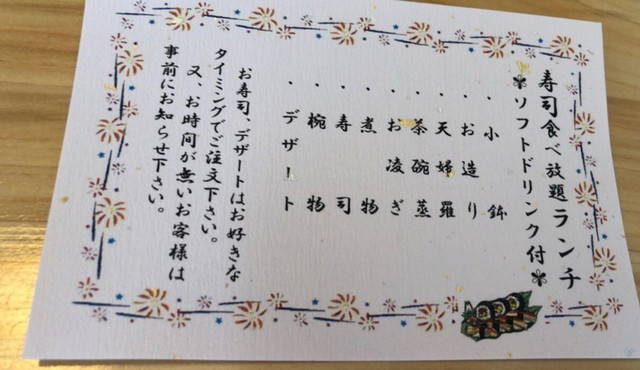 寿司食べ放題ランチ
ソフトドリンク付
・小鉢
・お造り
・天婦羅
・茶碗蒸
・お凌ぎ
・煮物
・寿司
・椀物
・デザート
お寿司、デザートはお好きな
タイミングでご注文下さい。
又、お時間が無いお客様は
事前にお知らせ下さい。